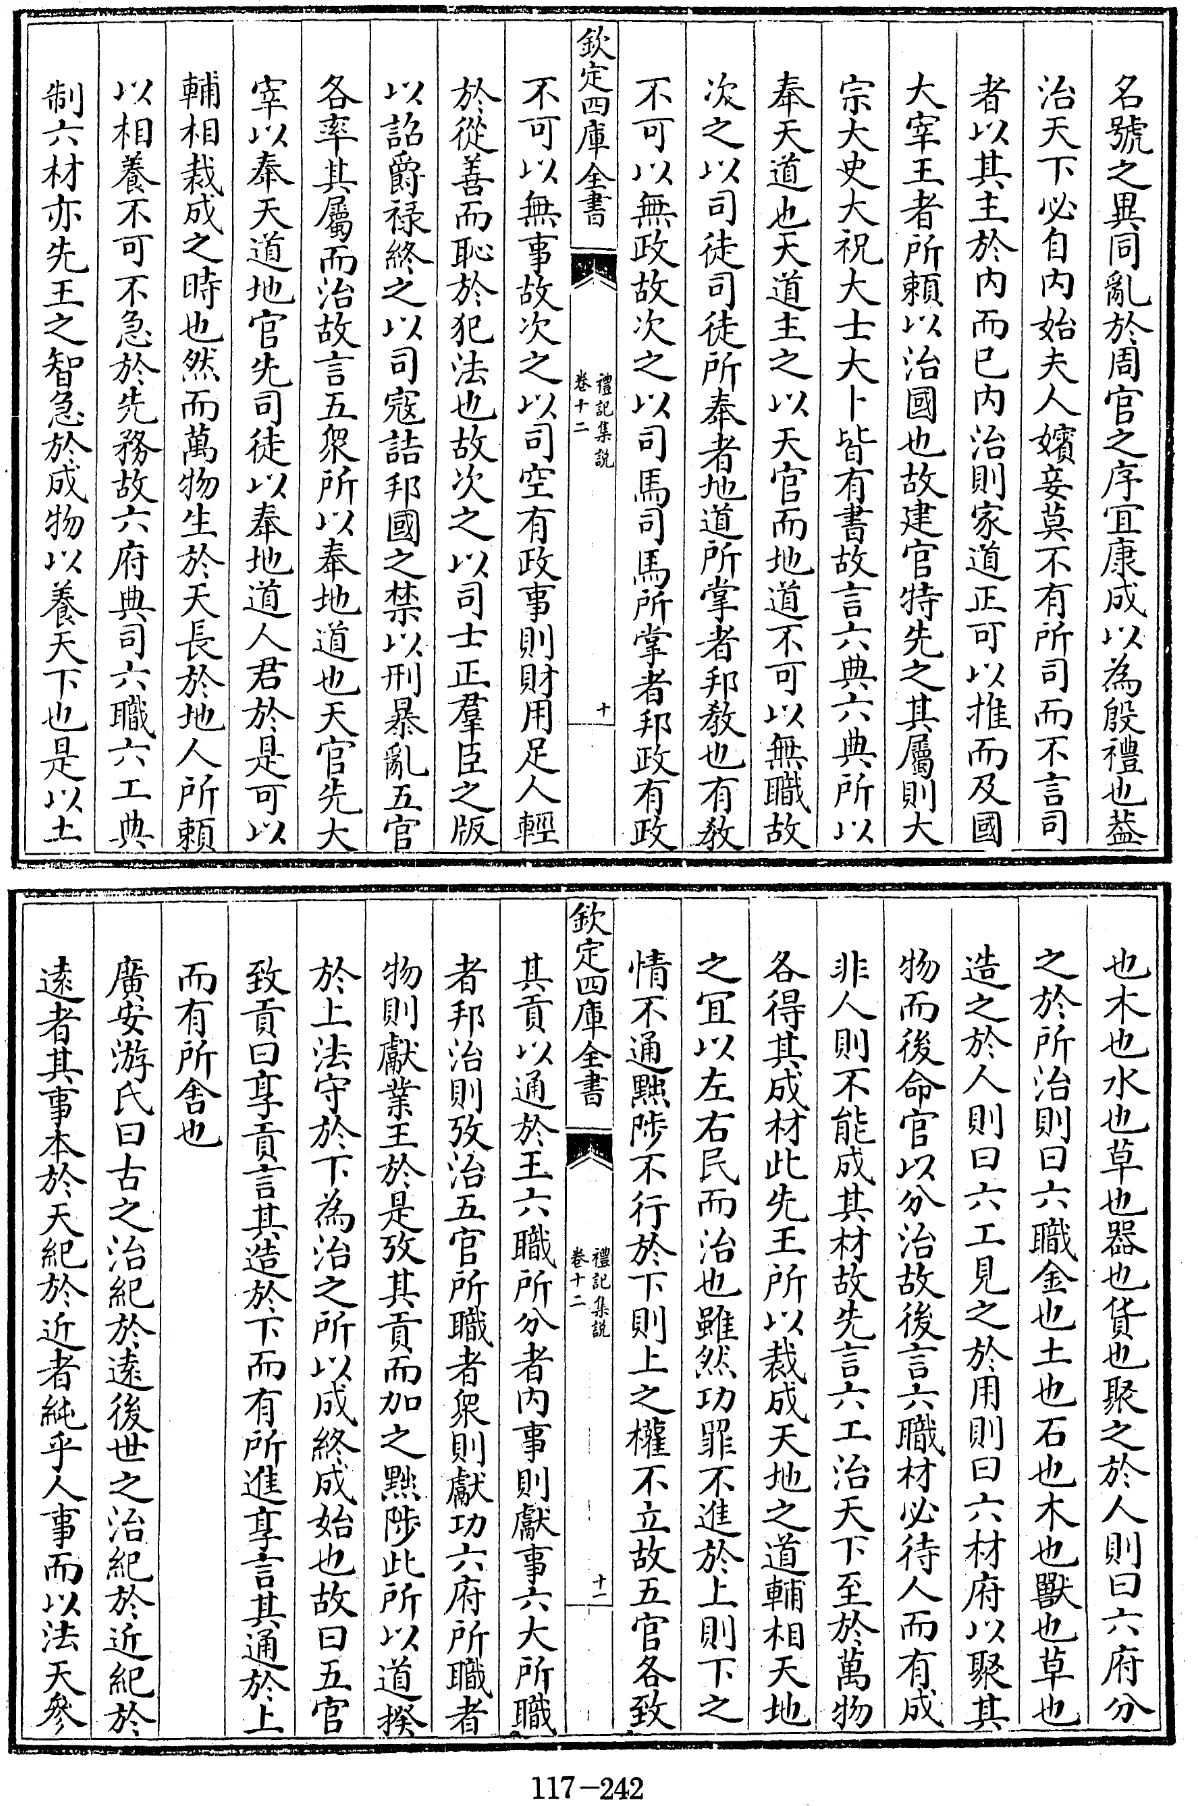 名號之異同亂於周官之序宜康成以為殷禮也葢
治天下必自内始夫人嬪妾莫不有所司而不言司
者以其主於内而已内治則家道正可以推而及國
大宰王者所頼以治國也故建官特先之其屬則大
宗大史大祝大士大卜皆有書故言六典六典所以
奉天道也天道主之以天官而地道不可以無職故
次之以司徒司徒所奉者地道所掌者邦敎也有敎
不可以無政故次之以司馬司馬所掌者邦政有政
欽定四庫全書
禮記集説
卷十二
十
不可以無事故次之以司空有政事則財用足人輕
於從善而恥於犯法也故次之以司士正羣臣之版
以詔爵禄終之以司寇詰邦國之禁以刑暴亂五官
各率其屬而治故言五衆所以奉地道也天官先大
宰以奉天道地官先司徒以奉地道人君於是可以
輔相裁成之時也然而萬物生於天長於地人所頼
以相養不可不急於先務故六府典司六職六工典
制六材亦先王之智急於成物以養天下也是以土
也木也水也草也器也貨也聚之於人則曰六府分
之於所治則曰六職金也土也石也木也獸也草也
造之於人則曰六工見之於用則曰六材府以聚其
物而後命官以分治故後言六職材必待人而有成
非人則不能成其材故先言六工治天下至於萬物
各得其成材此先王所以裁成天地之道輔相天地
之宜以左右民而治也雖然功罪不進於上則下之
情不通黜陟不行於下則上之權不立故五官各致
欽定四庫全書
禮記集説
卷十二
十一
其貢以通於王六職所分者内事則獻事六大所職
者邦治則攷治五官所職者衆則獻功六府所職者
物則獻業王於是攷其貢而加之黜陟此所以道揆
於上法守於下為治之所以成終成始也故曰五官
致貢曰享貢言其造於下而有所進享言其通於上
而有所舍也
廣安游氏曰古之治紀於遠後世之治紀於近紀於
遠者其事本於天紀於近者純乎人事而以法天參
117-242